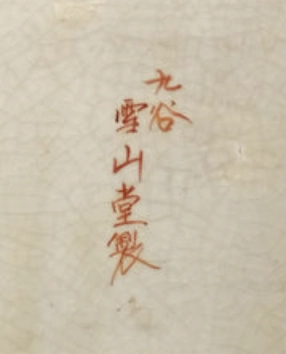 九谷
雲山堂製